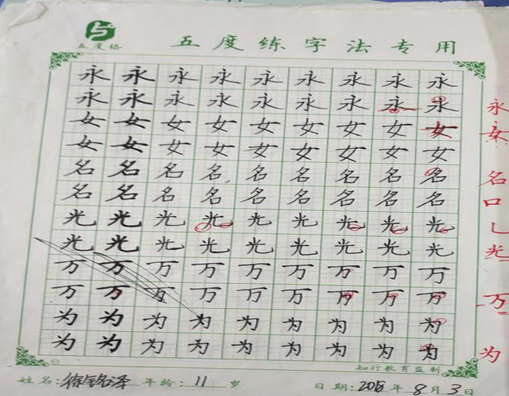 五度格
五度练字法专用
永永永永永永永永永
永永永永永永永永永
女女女女女女女女女
女女女女女女女女女
名名名名名名名名名
名名名名名名名名名
光光光光光光光光光
光光光光光光光光光
万万万万万万万万万
万万万万万万万万万
为为为为为为为为为
为为为为为为为为为
永
女
名
口
乚
光
万
为
知行教育监制
姓名: 年龄: 11 岁 日期: 年 8 月 3 日